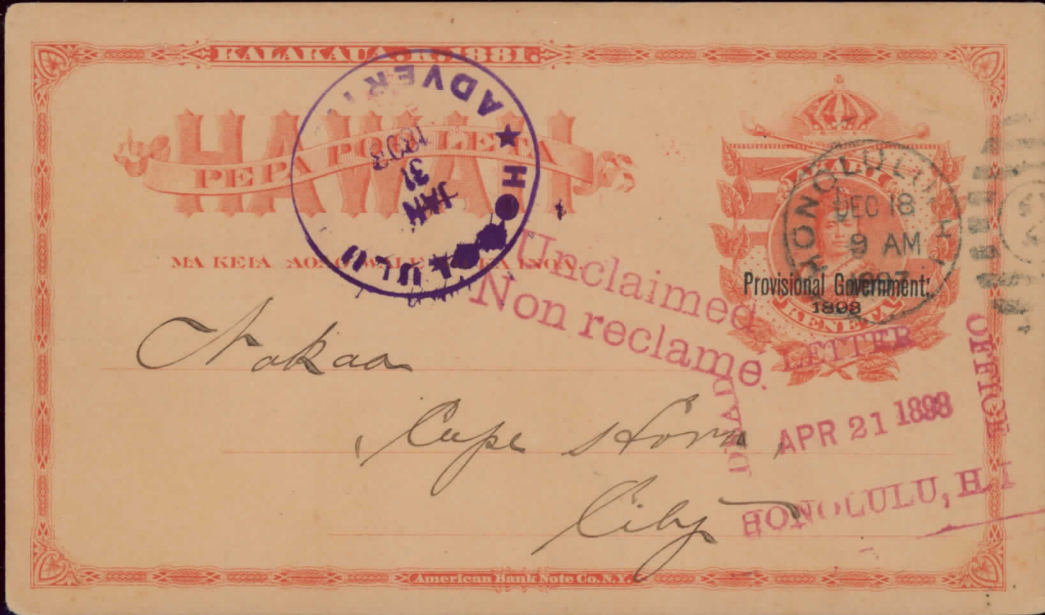 KALAKAUA. 1881.
HAWAII
PEPA POO LETA
MA KEIA AO
★ H LULU
ADVER
JAN
31
HONOLULU H
DEC 18
9 AM
Provisional Government:
KENETA
Unclaimed
Non reclamé.
DEAD LETTER OFFICE
APR 21 1898
HONOLULU, H.I
Nakaa
Cape Horn,
City
American Bank Note Co. N.Y.